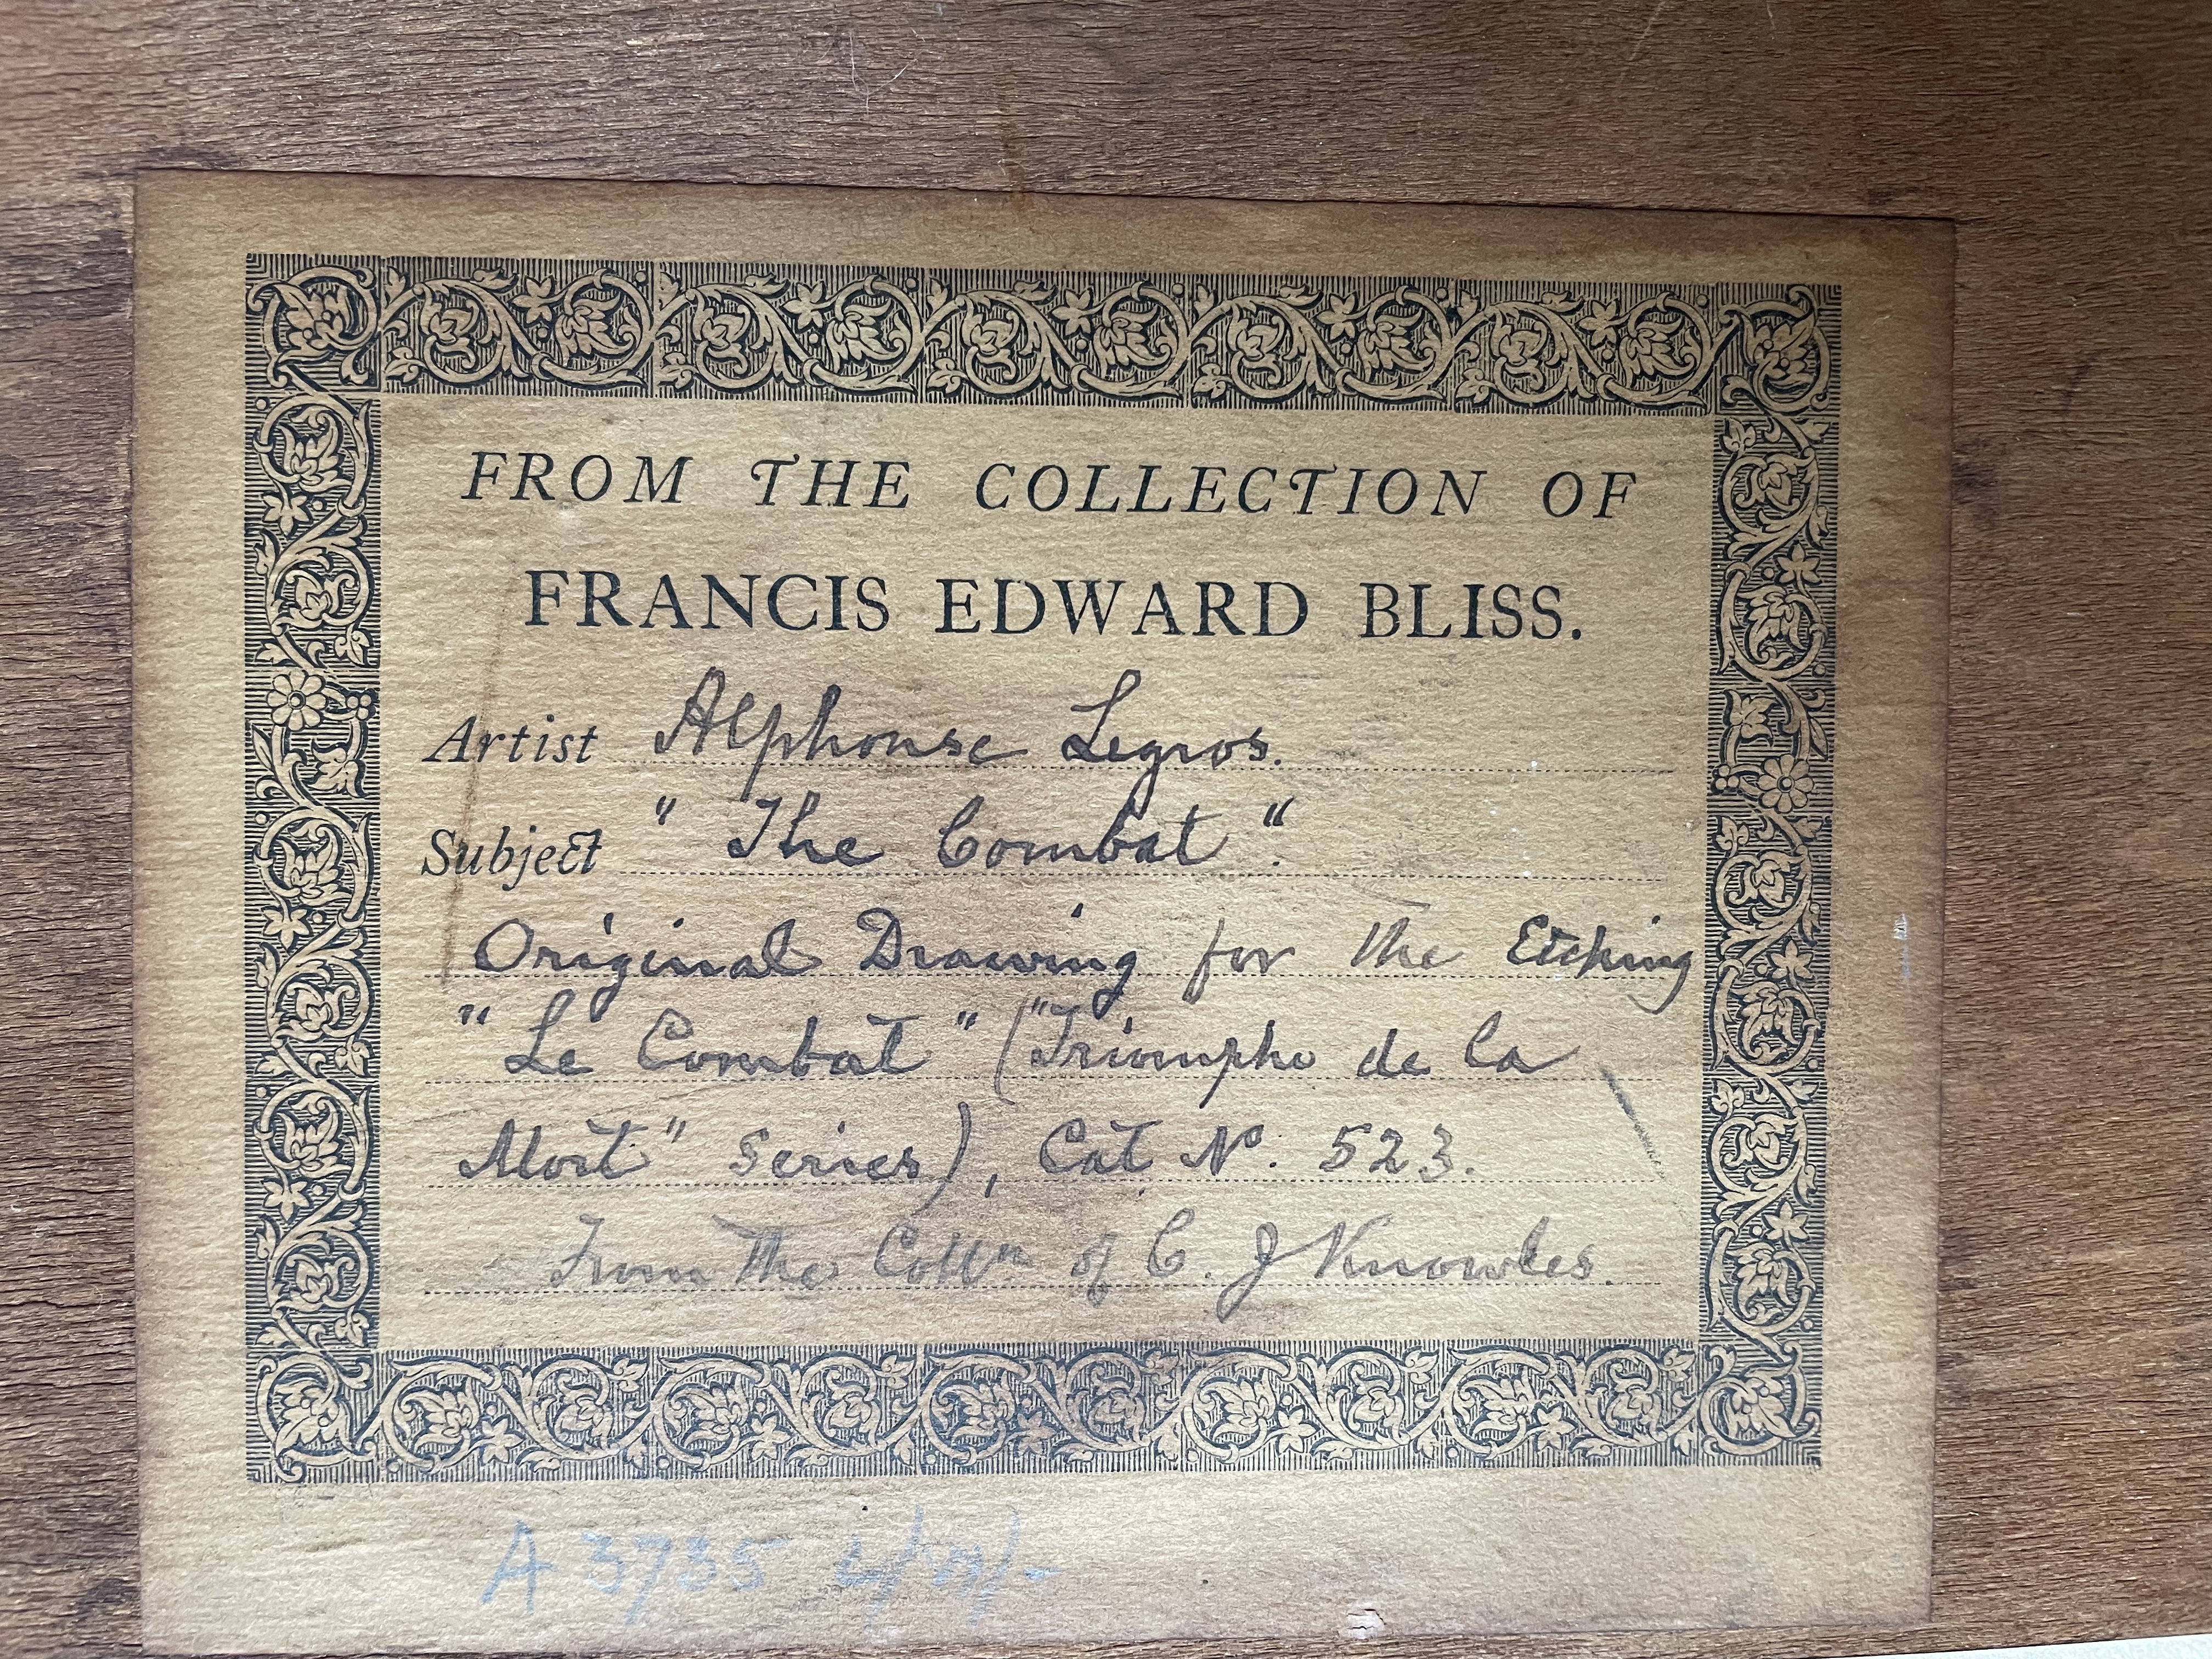 FROM THE COLLECTION OF
FRANCIS EDWARD BLISS.
Artist Alphonse Legros.
Subject " The Combat ".
Original Drawing for the Etching
" Le Combat " ("Triomphe de la
Mort" Series), Cat No. 523.
From the Colln of C. J Knowles.
A 3735